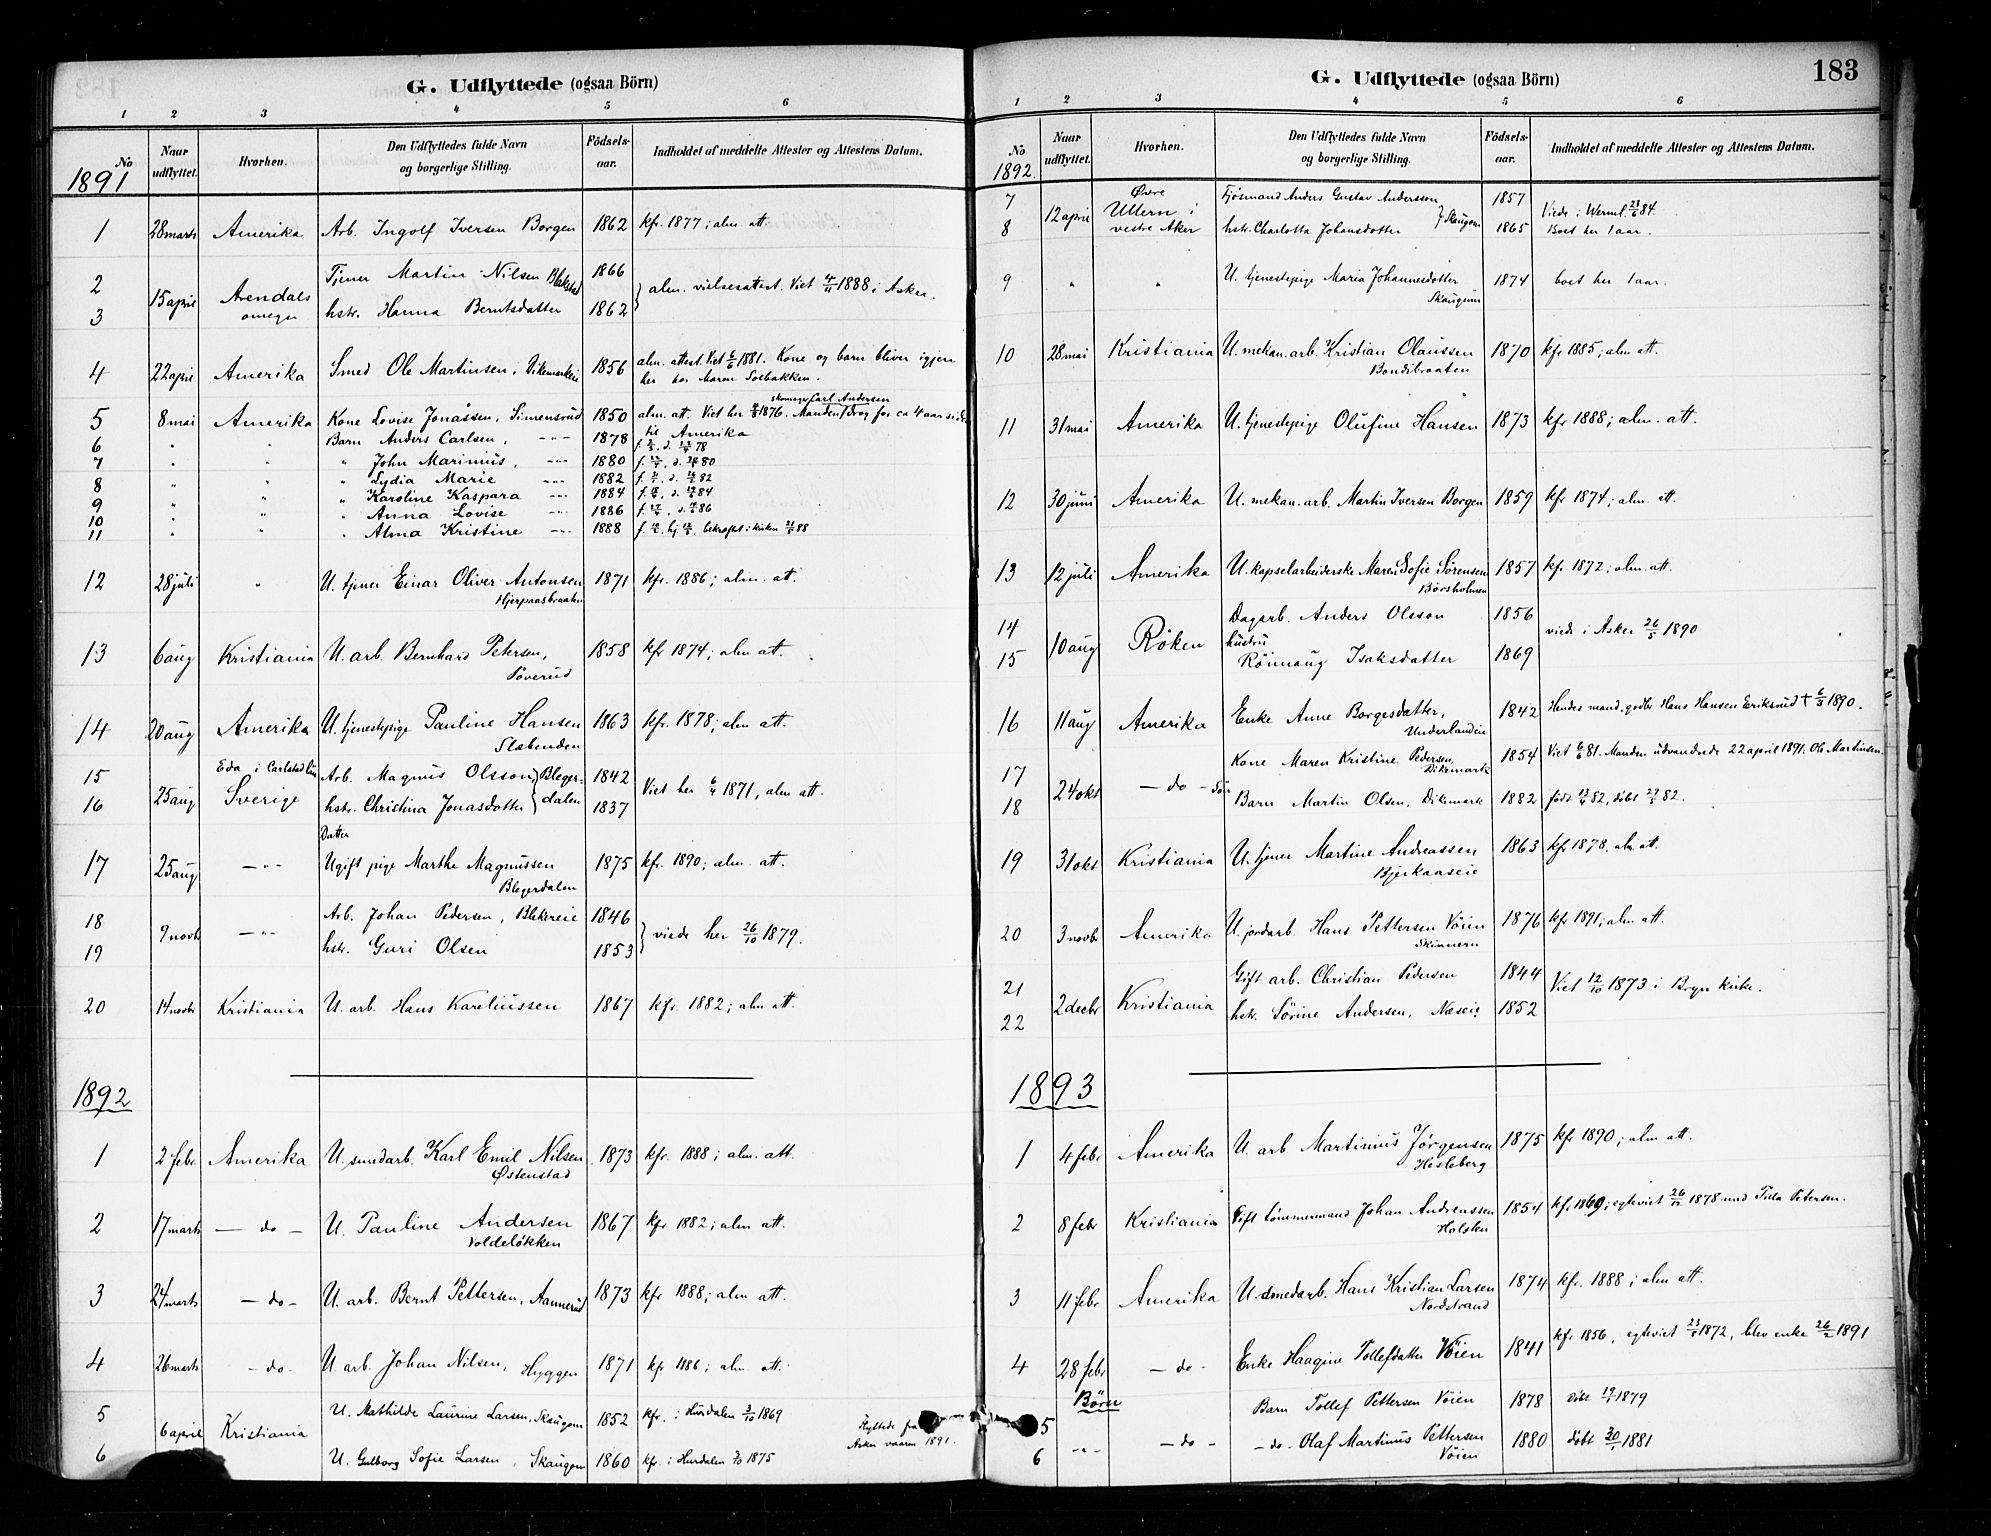 G. Udflyttede (ogsaa Börn)
1 2 3 4 5 6
No Naar udflyttet. Hvorhen. Den Udflyttedes fulde Navn og borgerlige Stilling. Fødselsaar. Indholdet af meddelte Attester og Attestens Datum.
1891
1 28 marts Amerika Arb. Ingolf Iversen Borgen 1862 kfr. 1877; alm. att.
2 Tjener Martin Nilsen Blakstad 1866
15 april Arendals omegn } alm. vielsesattest. Viet 4/11 1888 i Asker.
3 hstr. Hanna Berntsdatter 1862
4 22 april Amerika Smed Ole Martinsen, Dikemarkeie 1856 alm. attest. Viet 6/6 1881. Kone og barn bliver igjen
her hos Maren Solbakken.
skomager Carl Andersen
5 8 mai Amerika Kone Lovise Jonassen, Simensrud 1850 alm. att. Viet her 1876. Manden drog for ca 4 aar siden
til Amerika
6 " " Barn Anders Carlsen, -"- 1878 78
7 " " " John Marinius, -"- 1880 80
8 " " " Lydia Marie -"- 1882 82
9 " " " Karoline Kaspara -"- 1884 84
10 " " " Anna Lovise -"- 1886 86
11 " " " Alma Kristine -"- 1888 bekræftet i kirken 88
12 28 juli " U. tjener Einar Oliver Antonsen 1871 kfr. 1886; alm. at.
Hjerpaasbraaten
13 6 aug Kristiania U. arb. Bernhard Petersen, 1858 kfr 1874; alm att.
Poverud
14 20 aug Amerika U. tjenestepige Pauline Hansen 1863 kfr. 1878; alm att.
Slæbenden
15 Eda i Carlstad Arb. Magnus Olsson } Bleger- 1842
25 aug Sverige Viet her 6/4 1871, alm att.
16 hstr. Christina Jonasdotter } dalen 1837
Datter
17 25 aug -"- Ugift pige Marthe Magnussen 1875 kfr. 1890; alm. att.
Blegerdalen
18 Arb. Johan Pedersen, Blekereie 1846
9 novb -"- } viede her 26/10 1879.
19 hstr. Guri Olsen 1853
20 14 novb Kristiania U. arb. Hans Kareliussen 1867 kfr. 1882; alm att.
1892
1 2 febr. Amerika U. smedarb. Karl Emil Nilsen 1873 kfr. 1888; alm. att.
Østenstad
2 17 marts - do - U. Pauline Andersen 1867 kfr 1882; alm att.
Voldeløkken
3 24 marts - do - U. arb. Bernt Pettersen, Aamerud 1873 kfr 1888; alm att.
4 26 marts - do - U arb. Johan Nilsen, Hyggen 1871 kfr 1886; alm. att.
5 U. Mathilde Laurine Larsen, Skaugum 1852 kfr. i Hurdalen 3/10 1869
6 april Kristiania Flyttede fra
Asker vaaren 1891.
6 U. Gulborg Sofie Larsen, Skaugum 1860 kfr. i Hurdalen 1875
G. Udflyttede (ogsaa Börn) 183
1 2 3 4 5 6
No Naar udflyttet. Hvorhen. Den Udflyttedes fulde Navn og borgerlige Stilling. Fødselsaar. Indholdet af meddelte Attester og Attestens Datum.
1892.
7 Øvre Fjøsmand Anders Gustav Andersson 1857
12 april Ullern i } Skaugum Viede i Werml. 23/6 84.
8 vestre Aker hstr. Charlotta Johansdotter 1865 Boet her 1 aar.
9 " " U. tjenestepige Maria Johannesdotter 1874 boet her 1 aar.
Skaugum
10 28 mai Kristiania U. mekan. arb. Kristian Olaussen 1870 kfr 1885; alm att.
Bondibraaten
11 31 mai Amerika U. tjenestepige Olufine Hansen 1873 kfr 1888; alm. att.
12 30 juni Amerika U. mekan. arb. Martin Iversen Borgen 1859 kfr 1874; alm. att.
13 12 juli Amerika U. kapselarbeiderske Maren Sofie Sörensen 1857 kfr. 1872; alm. att.
Börsholmen
14 Dagarb. Anders Olsson 1856
10 aug Røken hustru viede i Asker 26/5 1890
15 Rönnaug Isaksdatter 1869
16 11 aug Amerika Enke Anne Borgesdatter, 1842 Hendes mand, gvdbr Hans Hansen Eriksrud † 6/3 1890.
Underlandeie
17 Kone Maren Kristine Pedersen, 1854 Viet 6/6 81. Manden udvandrede 22 april 1891. Ole Martinsen.
Dikemark
24 okt - do -
18 Barn Martin Olsen, Dikemark 1882 født 82, døbt 82.
19 31 okt Kristiania U. tjener Martine Andreassen 1863 kfr 1878. alm att.
Bjerkaaseie
20 3 novb Amerika U. jordarb. Hans Pettersen Vöien 1876 kfr 1891; alm att.
Skinnern
21 Gift arb. Christian Pedersen 1844
2 decbr Kristiania Viet 12/10 1873 i kirke.
22 hstr. Sörine Andersen, Næseie 1852
1893
1 4 febr Amerika U. arb Martinius Jörgensen 1875 kfr 1890; alm att.
Hesleberg
2 8 febr Kristiania Gift tömmermand Johan Andreassen 1854 kfr. 1869; egteviet 26/12 1878 med Tilla Petersen.
Holsten
3 11 febr Amerika U. smedarb. Hans Kristian Larsen 1874 kfr. 1888; alm att.
Nordstrand
4 28 febr - do - Enke Haagine Tollefsdatter Vöien 1841 kfr 1856, egteviet 1872, blev enke 26/2 1891
Börn
5 Barn Tollef Pettersen Vöien 1878 döbt 1879
6 -"- - do - - do - Olaf Martinus Pettersen 1880 döbt 30/1 1881
Vöien